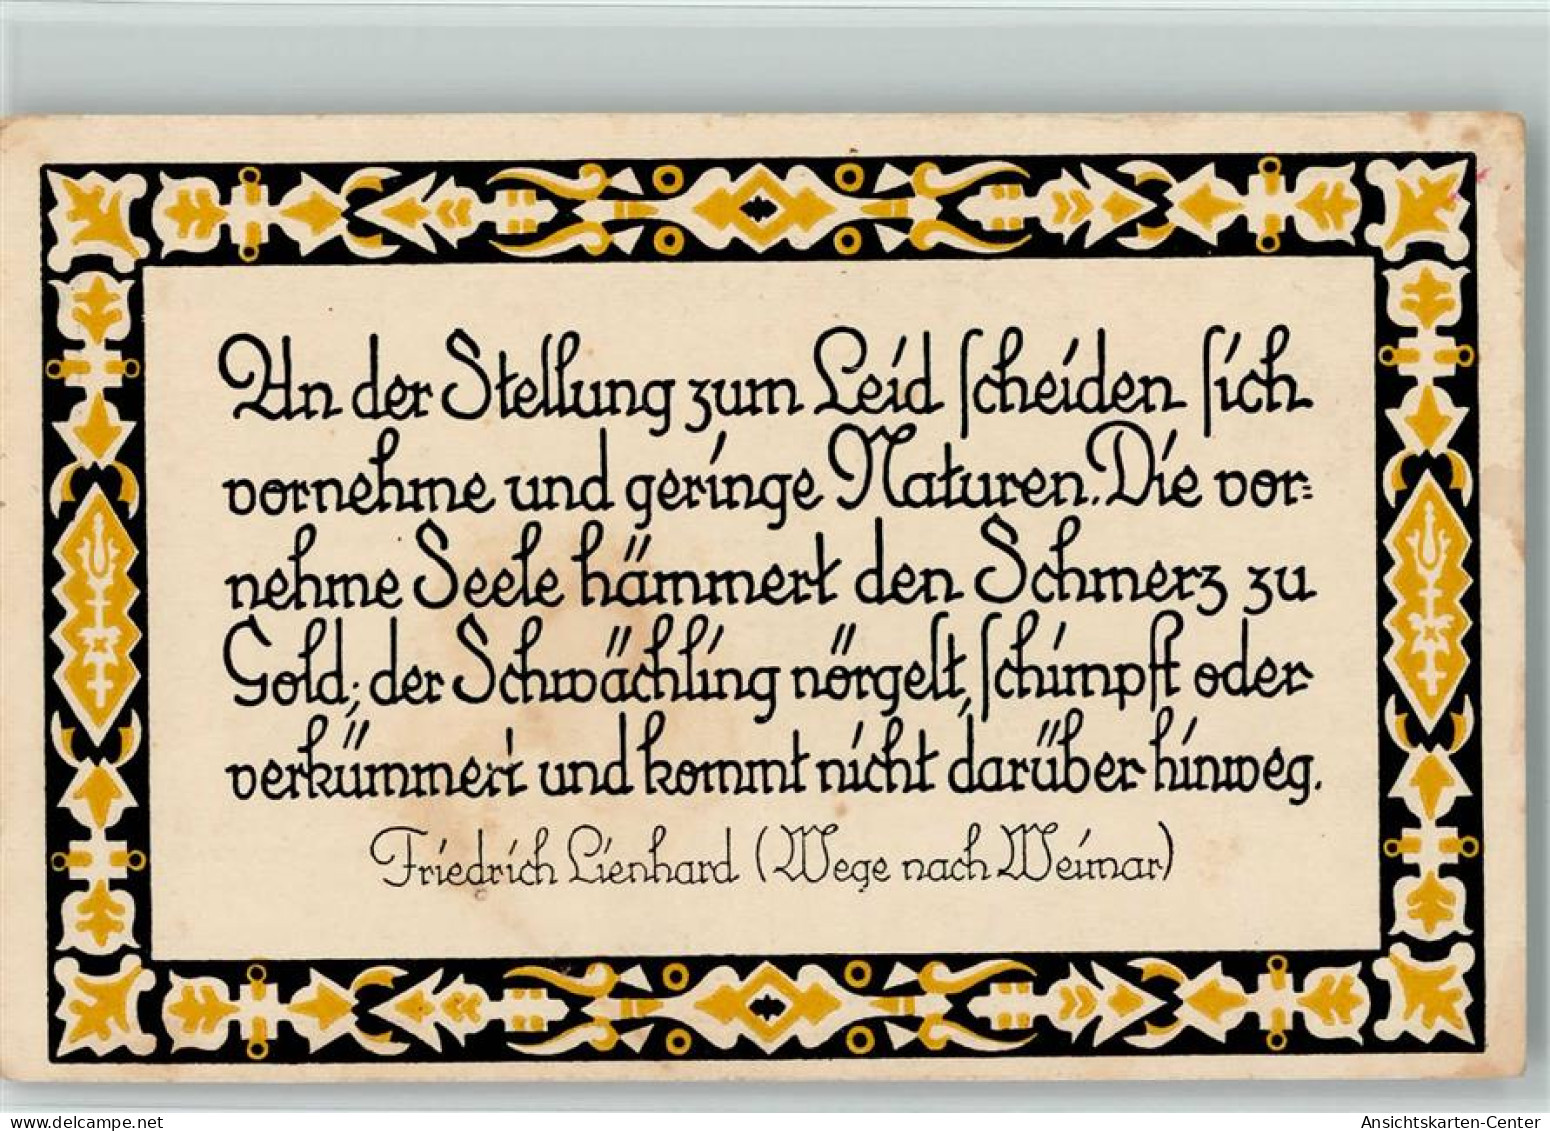 An der Stellung zum Leid scheiden sich
vornehme und geringe Naturen. Die vor=
nehme Seele hämmert den Schmerz zu
Gold; der Schwächling nörgelt, schimpft oder
verkümmert und kommt nicht darüber hinweg.
Friedrich Lienhard (Wege nach Weimar)
www.delcampe.net
Ansichtskarten-Center